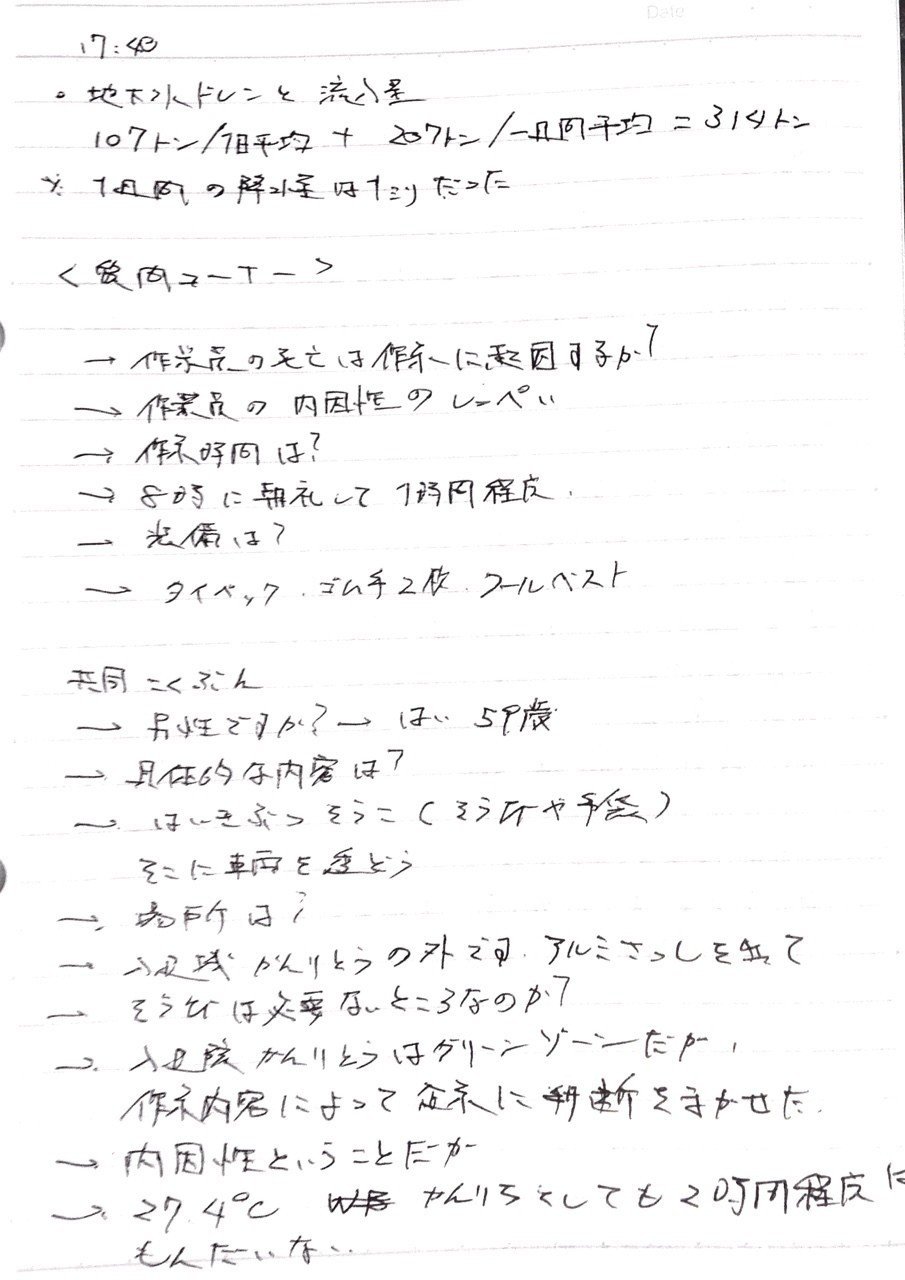 Date
17:40
・地下水ドレンと流入量
107トン/1日平均 + 207トン/一週間平均 = 314トン
※ 1週間の降水量は1ミリだった
<質問コーナー>
→ 作業員の死亡は作業に起因するか?
→ 作業員の内因性の
→ 作業時間は?
→ 8時に朝礼して1時間程度.
→ 装備は?
→ タイベック.ゴム手2枚.クールベスト
共同 こくぶん
→ 男性ですか? → はい 59歳
→ 具体的な内容は?
→ はいきぶつそうこ(そうひや手袋)
そこに車両を
→ 場所は?
→ 入退域かんりとうの外です.アルミさっしを
→ そうひは必要ないところなのか?
→ 入退域かんりとうはグリーンゾーンだが,
作業内容によって企業に判断をまかせた.
→ 内因性ということだが
→ 27.4℃ かんりちとしても2時間程度は
もんだいない.